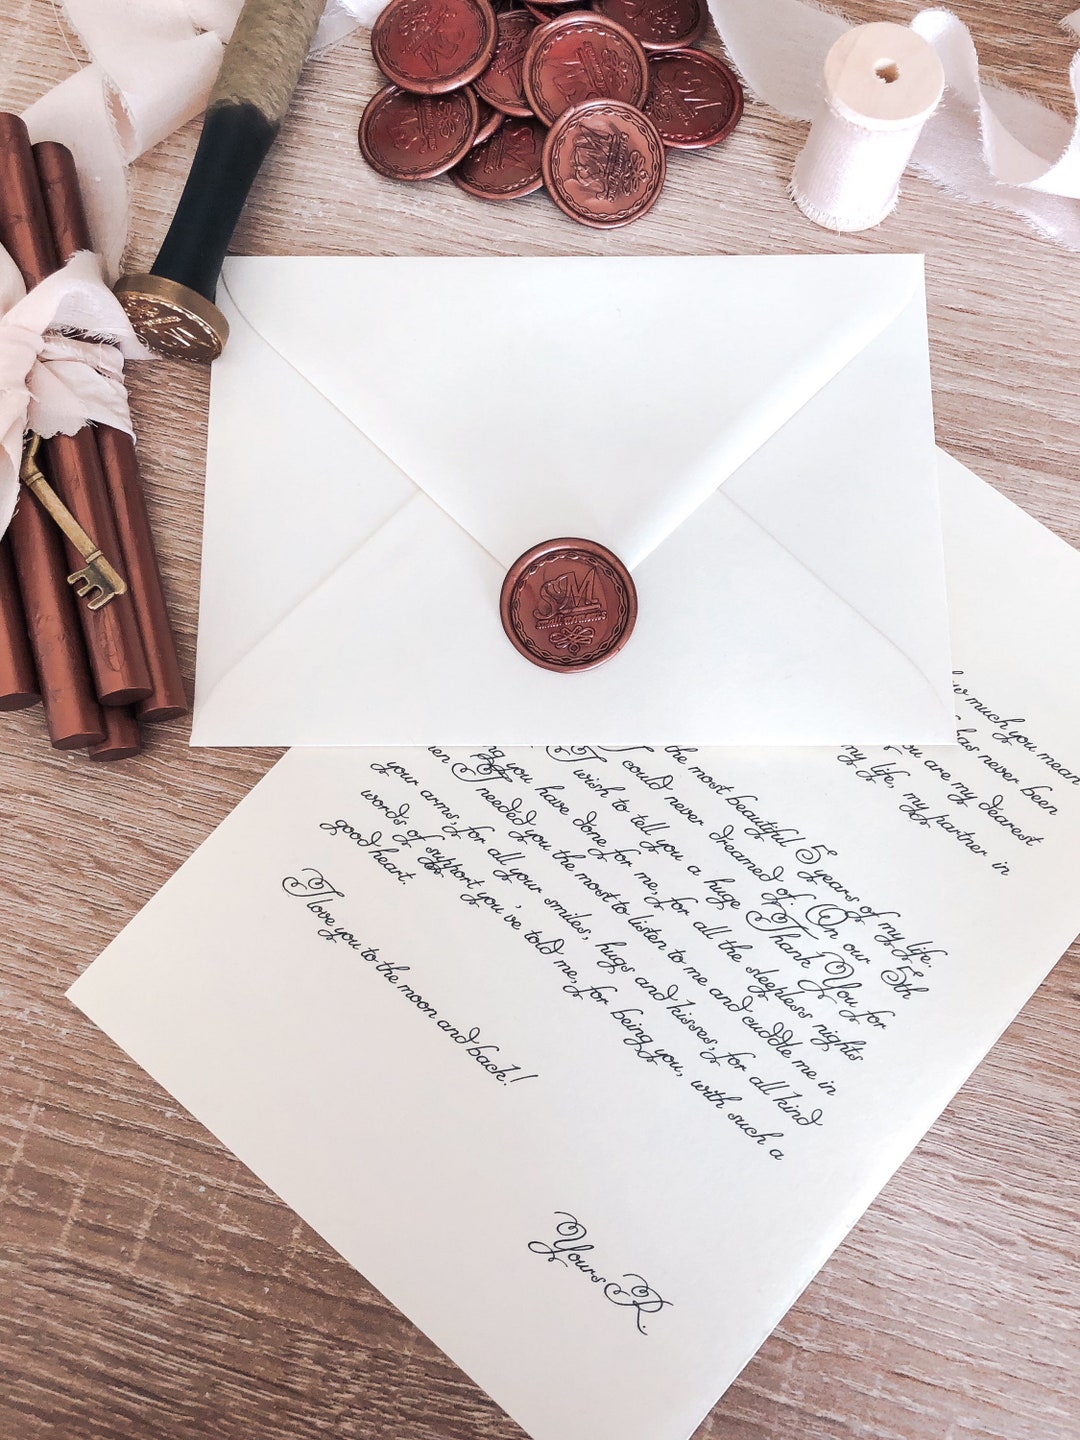 how much you mean
has never been
you are my dearest
my life, my partner in
the most beautiful 5 years of my life.
I could never dreamed of. On our 5th
I wish to tell you a huge Thank You for
you have done for me, for all the sleepless nights
I needed you the most to listen to me and cuddle me in
your arms, for all your smiles, hugs and kisses, for all kind
words of support you've told me, for being you, with such a
good heart.
I love you to the moon and back!
Yours R.
S&M